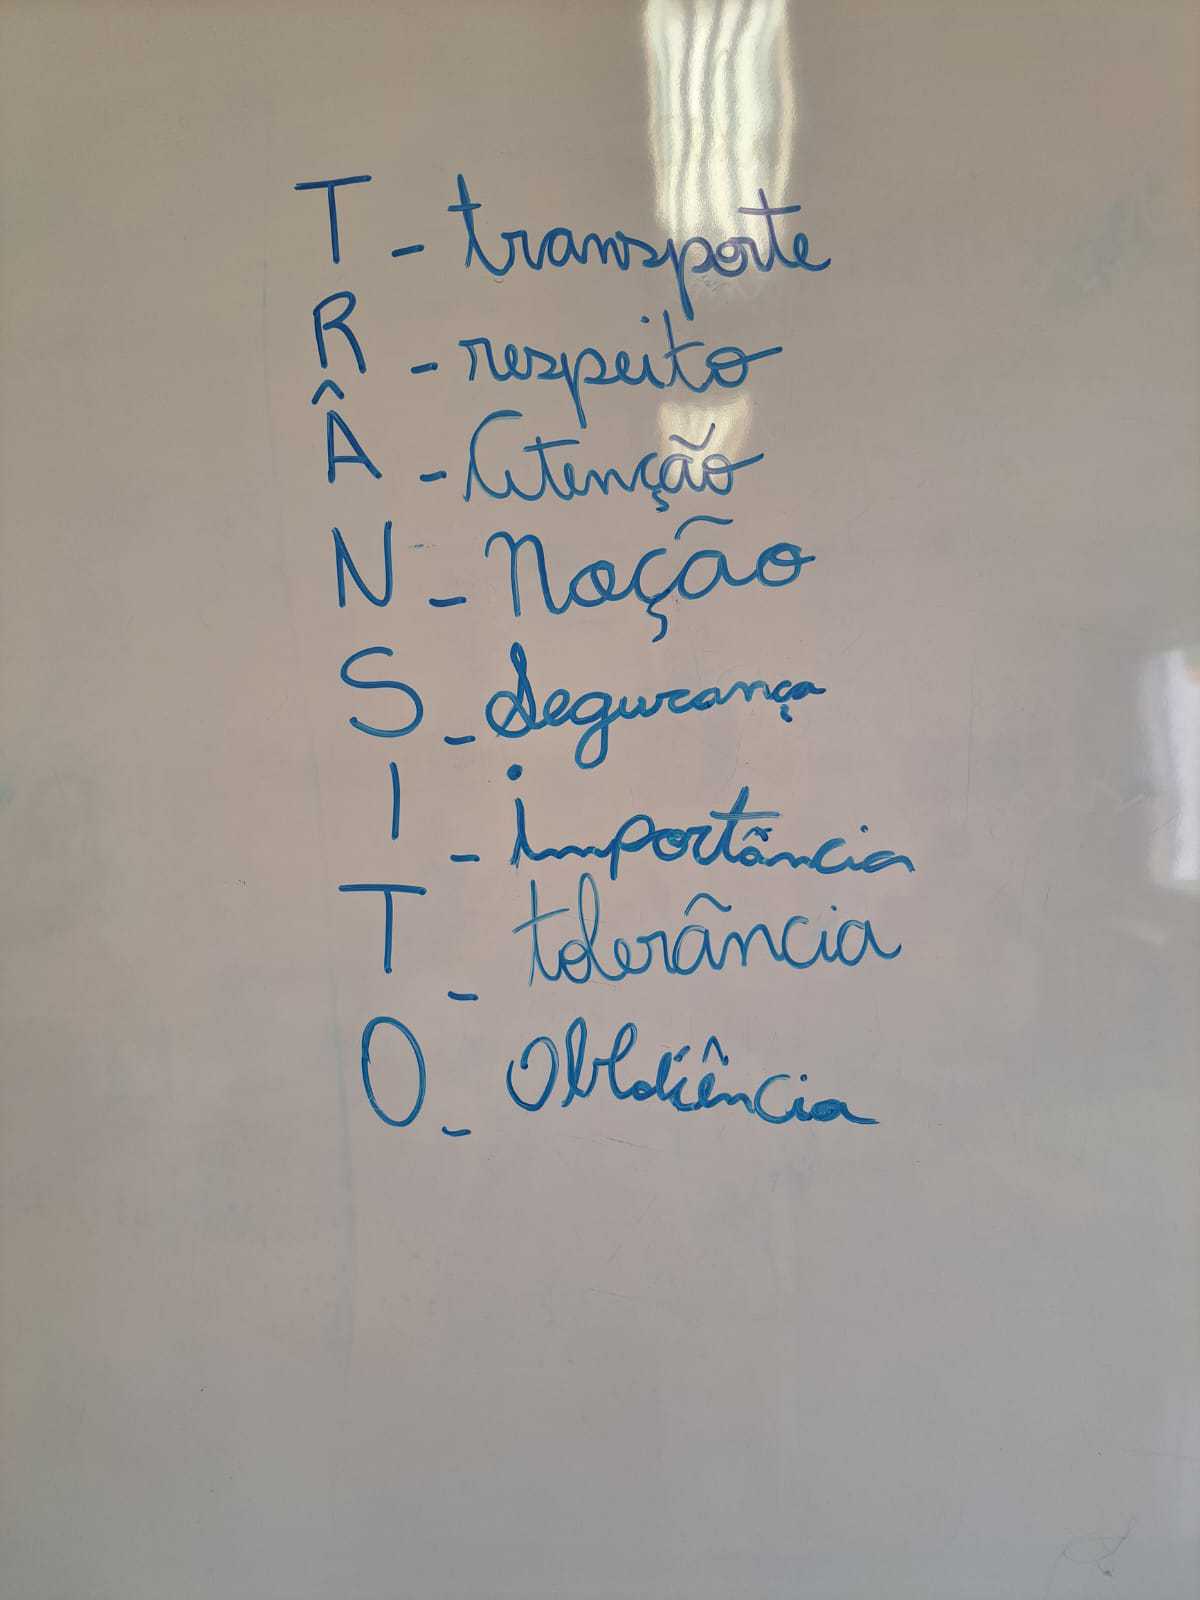 T - transporte
R - respeito
Â - Atenção
N - Noção
S - Segurança
I - importância
T - tolerância
O - Obediência